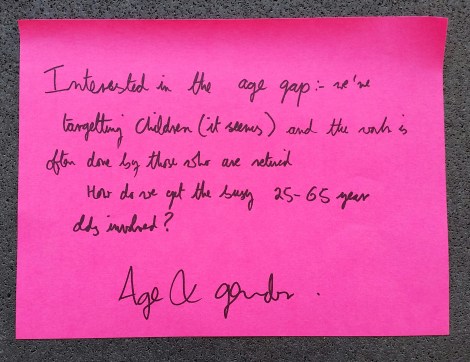 Interested in the age gap:- we're
targetting children (it seems) and the work is
often done by those who are retired
How do we get the busy 25-65 year
olds involved?
Age & gender.